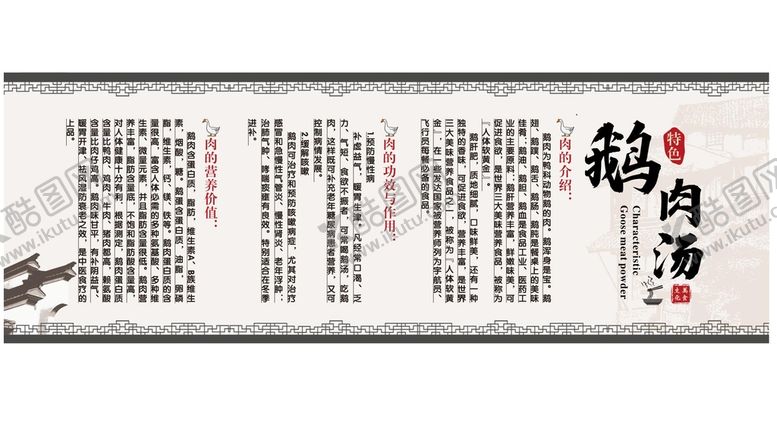 特色
鹅肉汤
Characteristic
Goose meat powder
美食
文化
肉的介绍:
鹅肉为鸭科动物鹅的肉。鹅浑身是宝。鹅
翅、鹅蹼、鹅舌、鹅肠、鹅肫是餐桌上的美味
佳肴;鹅油、鹅胆、鹅血是食品工业、医药工
业的主要原料;鹅肝营养丰富,鲜嫩味美,可
促进食欲,是世界三大美味营养食品,被称为
“人体软黄金”。
鹅肝肥,质地细腻,口味鲜美,还有一种
独特的香味,可促进食欲,营养丰富,是世界
三大美味营养食品之一,被称为『人体软黄
金』,在一些发达国家被营养师列为宇航员、
飞行员每餐必备的食品。
肉的功效与作用:
1.预防慢性病
补虚益气、暖胃生津。凡经常口渴、乏
力、气短、食欲不振者,可常喝鹅汤,吃鹅
肉,这样既可补充老年糖尿病患者营养,又可
控制病情发展。
2.缓解咳嗽
鹅肉可治疗和预防咳嗽病症,尤其对治疗
感冒和急慢性气管炎、慢性肾炎、老年浮肿;
治肺气肿、哮喘痰壅有良效。特别适合在冬季
进补。
肉的营养价值:
鹅肉含蛋白质,脂肪,维生素A、B族维生
素,烟酸,糖。鹅蛋含蛋白质,油脂,卵磷
脂,维生素,钙,镁,铁等。鹅肉蛋白质的含
量很高,富含人体必需的多种氨基酸、多种维
生素、微量元素,并且脂肪含量很低。鹅肉营
养丰富,脂肪含量低,不饱和脂肪酸含量高,
对人体健康十分有利。根据测定,鹅肉蛋白质
含量比鸭肉、鸡肉、牛肉、猪肉都高,赖氨酸
含量比肉仔鸡高。鹅肉味甘平,有补阴益气、
暖胃开津、祛风湿防衰老之效,是中医食疗的
上品。